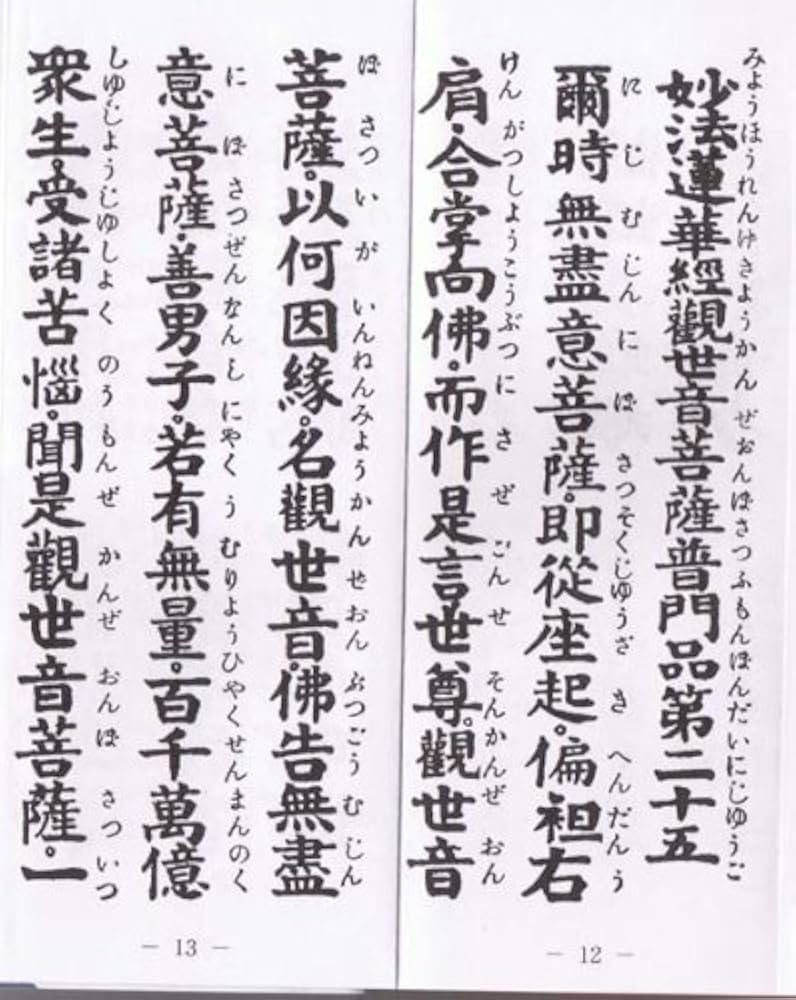 みようほうれんげきようかんぜおんぼさつふもんぼんだいにじゆうご
妙法蓮華經觀世音菩薩普門品第二十五
にじむじんにぼさつそくじゆうざきへんだんう
爾時無盡意菩薩。即從座起。偏袒右
けんがつしようこうぶつにさぜごんせそんかんぜおん
肩・合掌向佛・而作是言世尊。觀世音
－12－
ぼさついがいんねんみようかんぜおんぶつごうむじん
菩薩。以何因緣。名觀世音。佛告無盡
にぼさつぜんなんしにやくうむりようひやくせんまんのく
意菩薩・善男子。若有無量。百千萬億
しゆじようじゆしよくのうもんぜかんぜおんぼさついつ
衆生。受諸苦惱。聞是觀世音菩薩。一
－13－